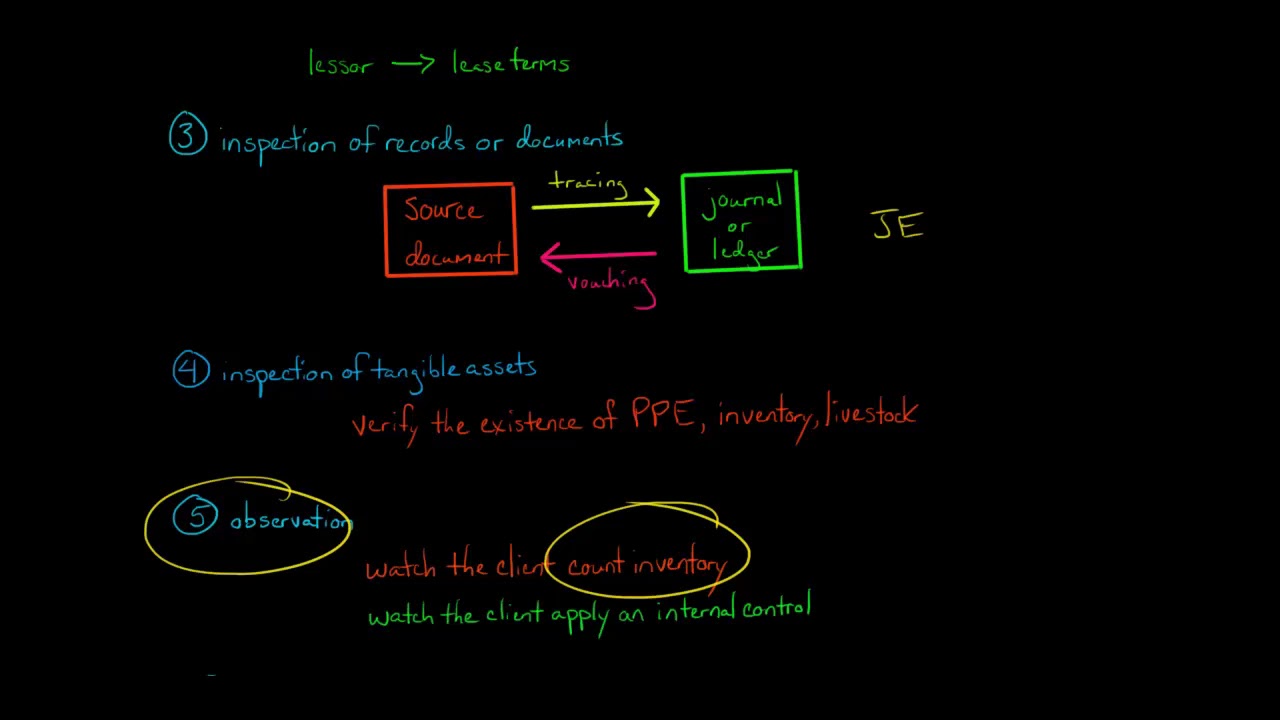 lessor → lease terms
③ inspection of records or documents
tracing
source
document
journal
or
ledger
JE
vouching
④ inspection of tangible assets
verify the existence of PPE, inventory, livestock
⑤ observation
watch the client count inventory
watch the client apply an internal control